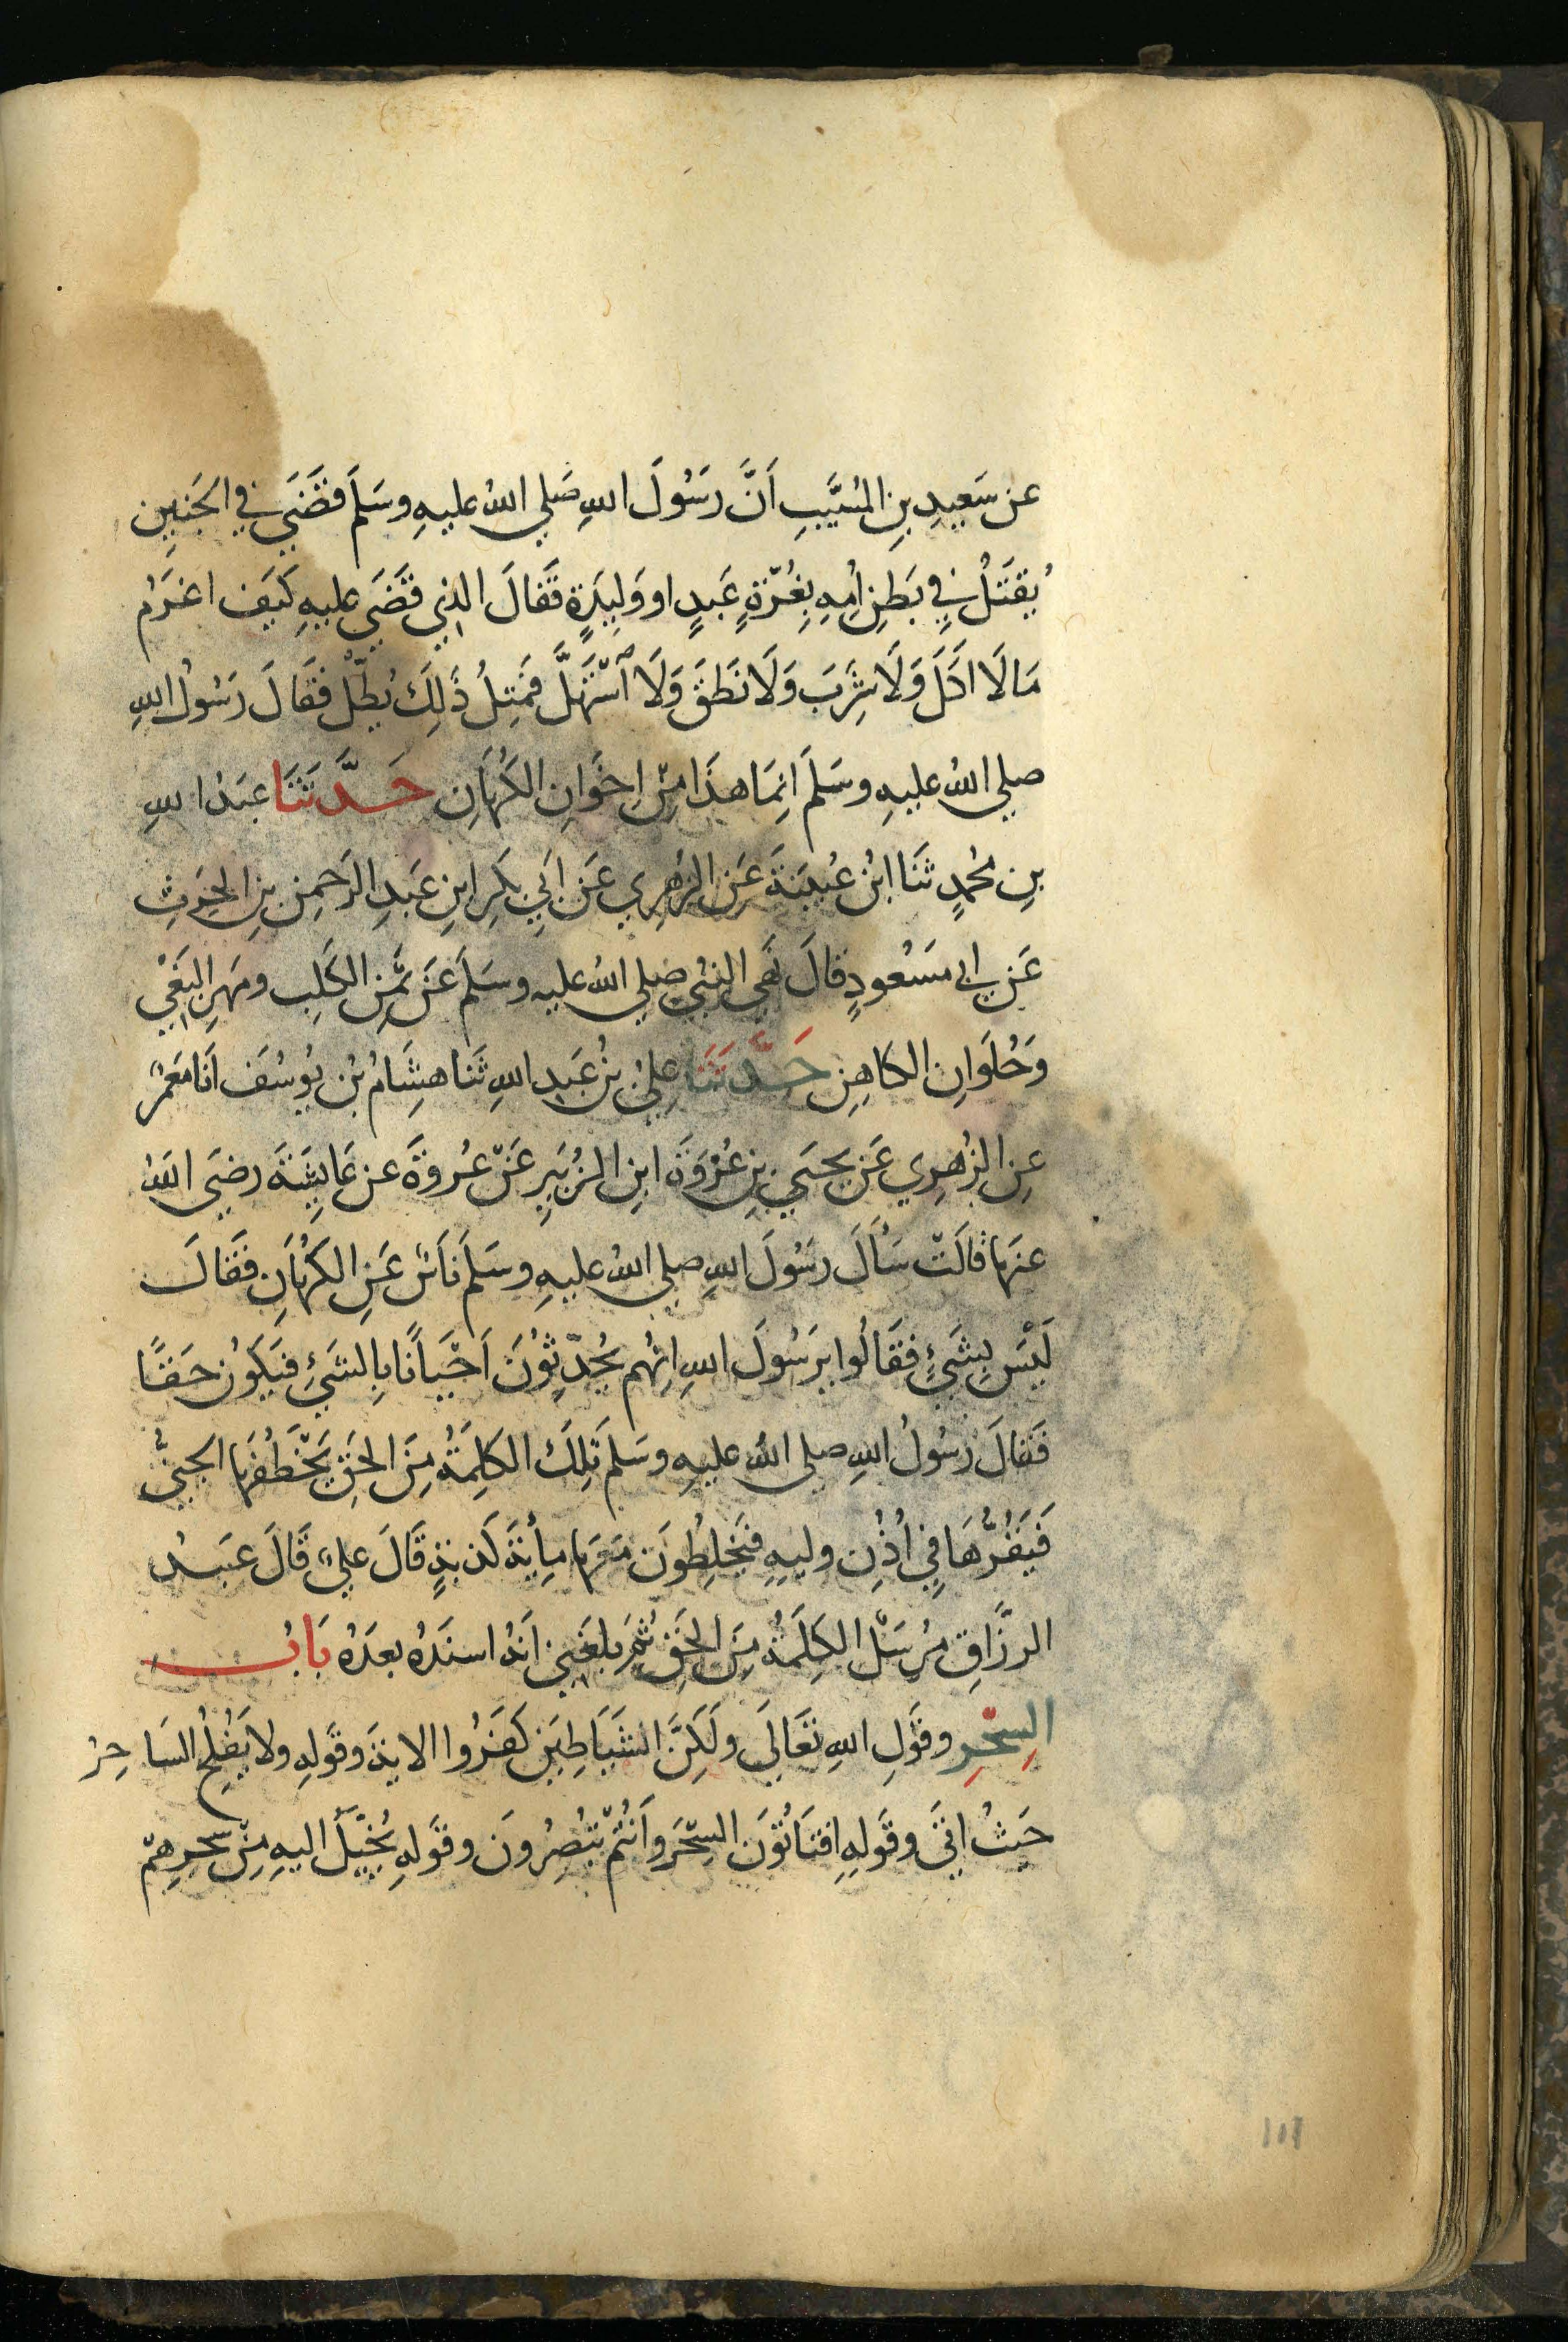 عن سَعِيدِ بنِ المُسَيَّبِ اَنَّ رَسُولَ اللهِ صَلي اللهُ عليهِ وسَلمَ قَضَي في الجَنِينِ
يُقتَلُ فِي بَطنِ اُمِهِ بِغُرّةٍ عَبدٍ او وَلِيدَةٍ فَقالَ الذِي قَضَي عليهِ كَيفَ اغرَمُ
مَا لَا اَكَلَ وَلَا شَرِبَ وَلَا نَطقَ وَلَا اسْتَهَلَّ فَمِثلُ ذَلِكَ بُطِلّ فقَالَ رَسُولُ اللهِ
صلي اللهُ عليهِ وسَلمَ انِمَا هذَا مِنْ اِخوَانِ الكُهّانِ حَدَّثَنَا عبَدُ اللهِ
بنِ مُحَمدٍ ثَنَا ابنُ عُيَينَةَ عَنِ الزُهرِي عَن ابَي بكرِ ابنِ عَبدِ الرَحمِن بنِ الحرِثِ
عَن ابي مسَعُودٍ قالَ نَهَي النَبُي صلي اللهُ عليه وسَلمَ عَن ثَمَنِ الكَلبِ ومَهرِ البَغيِ
وَحُلوَانِ الكاهِنِ حَدَّثنَا عِليُ بنُ عَبدِ اللهِ ثَنا هِشَامُ بن يُوسُفَ انَا مَعمَرٌ
عنِ الزُهرِي عَن يحيَي بنِ عُرْوَةَ ابنِ الزُبَيرِ عَنْ عُروةَ عن عَايِشَةَ رضيَ اللهُ
عنهَا قالَتْ سَأَلَ رسُولَ اللهِ صلي اللهُ عليهِ وسَلمَ ناَسٌ عَنِ الكُهّانِ فقَالَ
لَيْسَ بِشَيٍء فقَالُوا يرَسُولَ اللهِ انِهُم يُحَدّثِوُنَ اَحْيَانًا بِالشَيِء فيَكوُن حَقًا
فقَالَ رسُولُ اللهِ صلي اللهُ عليهِ وسَلم تِلكَ الكَلِمَةُ مِنَ الحَقِ يَخْطَفُهَا الجِنيُّ
فَيَقُرُّهَا فِي اُذُنِ وليِهِ فيَخلِطُونَ مَعَهَا مِأيةَ كَذبَةٍ قَالَ عليٌ قَالَ عبَدُ
الرزَّاقِ مرُسَلْ الكِلَمةُ مِنَ الحَقِ ثُمَ بلغَنِي اَنهُ اسنَدَهُ بعدَهُ بَابُ
السِحْرِ وقَولِ اللهِ تعَالَي ولَكِنَّ الشَيَاطِينَ كفَرُوا الايةَ وقَولِهِ ولا يُفلِحُ السَاحِرُ
حَيثُ اتَي وقَولِهِ افتَاتُونَ السِحْرَ وَاَنتُمْ تُبصِرُونَ وقَولِهِ يُخَيّلُ اليهِ مِنْ سِحرِهِمْ
١٥١